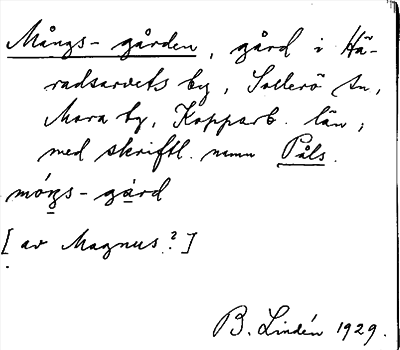 Mångs-gården, gård i Hä-
radsarvets by, Sollerö sn,
Mora tg, Kopparb. län;
med skriftl. namn Påls.
móŋs-gàrd
[av Magnus?]
B. Lindén 1929.